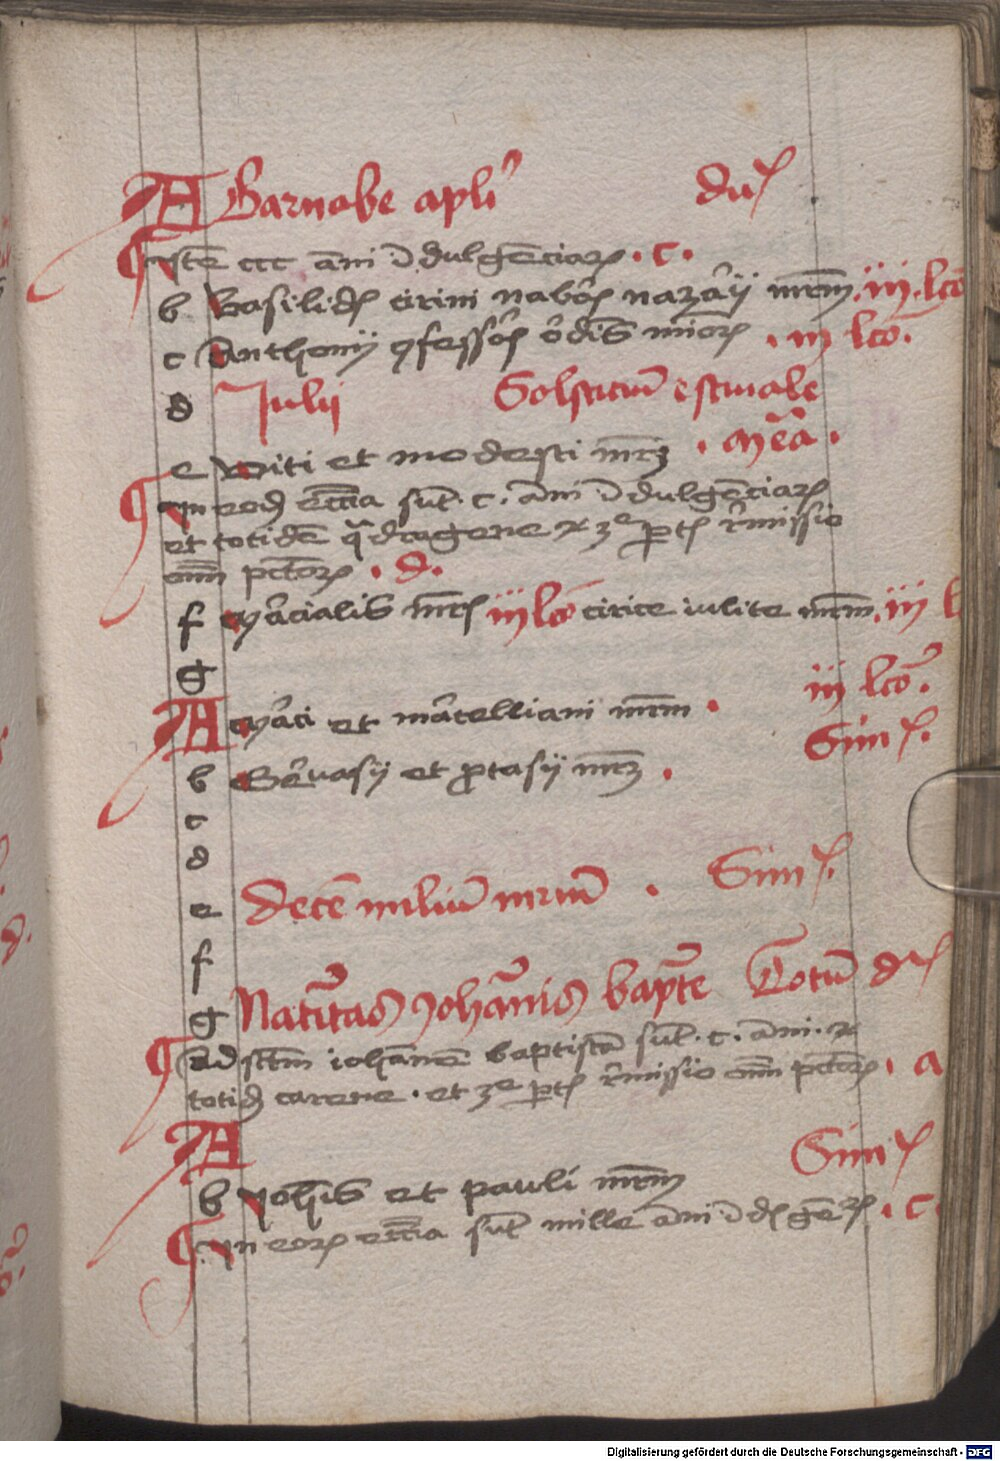 A Barnabe apli du
iste ccc ani i dulgenciar . c .
b Basilid cirini nabor nazarij mrm . iii . lco
c Anthonij 9fessor ordis minor . iii lco .
d Julij Solsticiu estiuale
e Viti et modesti mr . Mea .
In eod eccia sut . c . ani i dulgenciar
et totide qdragene et 3e pt rmissio
om pctor . d .
f Marcialis mr iii lco cirice iulite mrm . iii l
g
A Marci et marcelliani mrm . iii lco .
b Geruasij et ptasij mr . Simp .
c
d
e Dece miliu mriu . Simp .
f
g Natiuitas Johannis bapte Totu du
Ad sctm iohanne baptista sut . c . ani . et
totid carene . et 3e pt rmissio om pctor . A
A
b Johis et pauli mrm Simp
In eor eccia sut mille ani i d gen . c
Digitalisierung gefördert durch die Deutsche Forschungsgemeinschaft - DFG